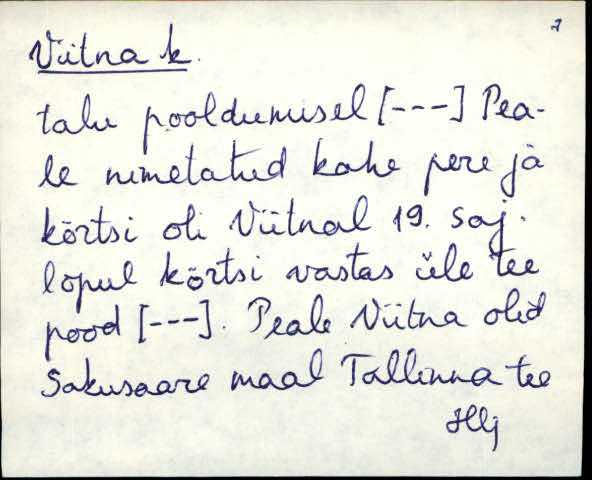 7
Viitna k.
talu pooldumisel [---] Pea-
le nimetatud kahe pere ja
kõrtsi oli Viitnal 19. saj.
lõpul kõrtsi vastas üle tee
pood [---]. Peale Viitna olid
Sakusaare maal Tallinna tee